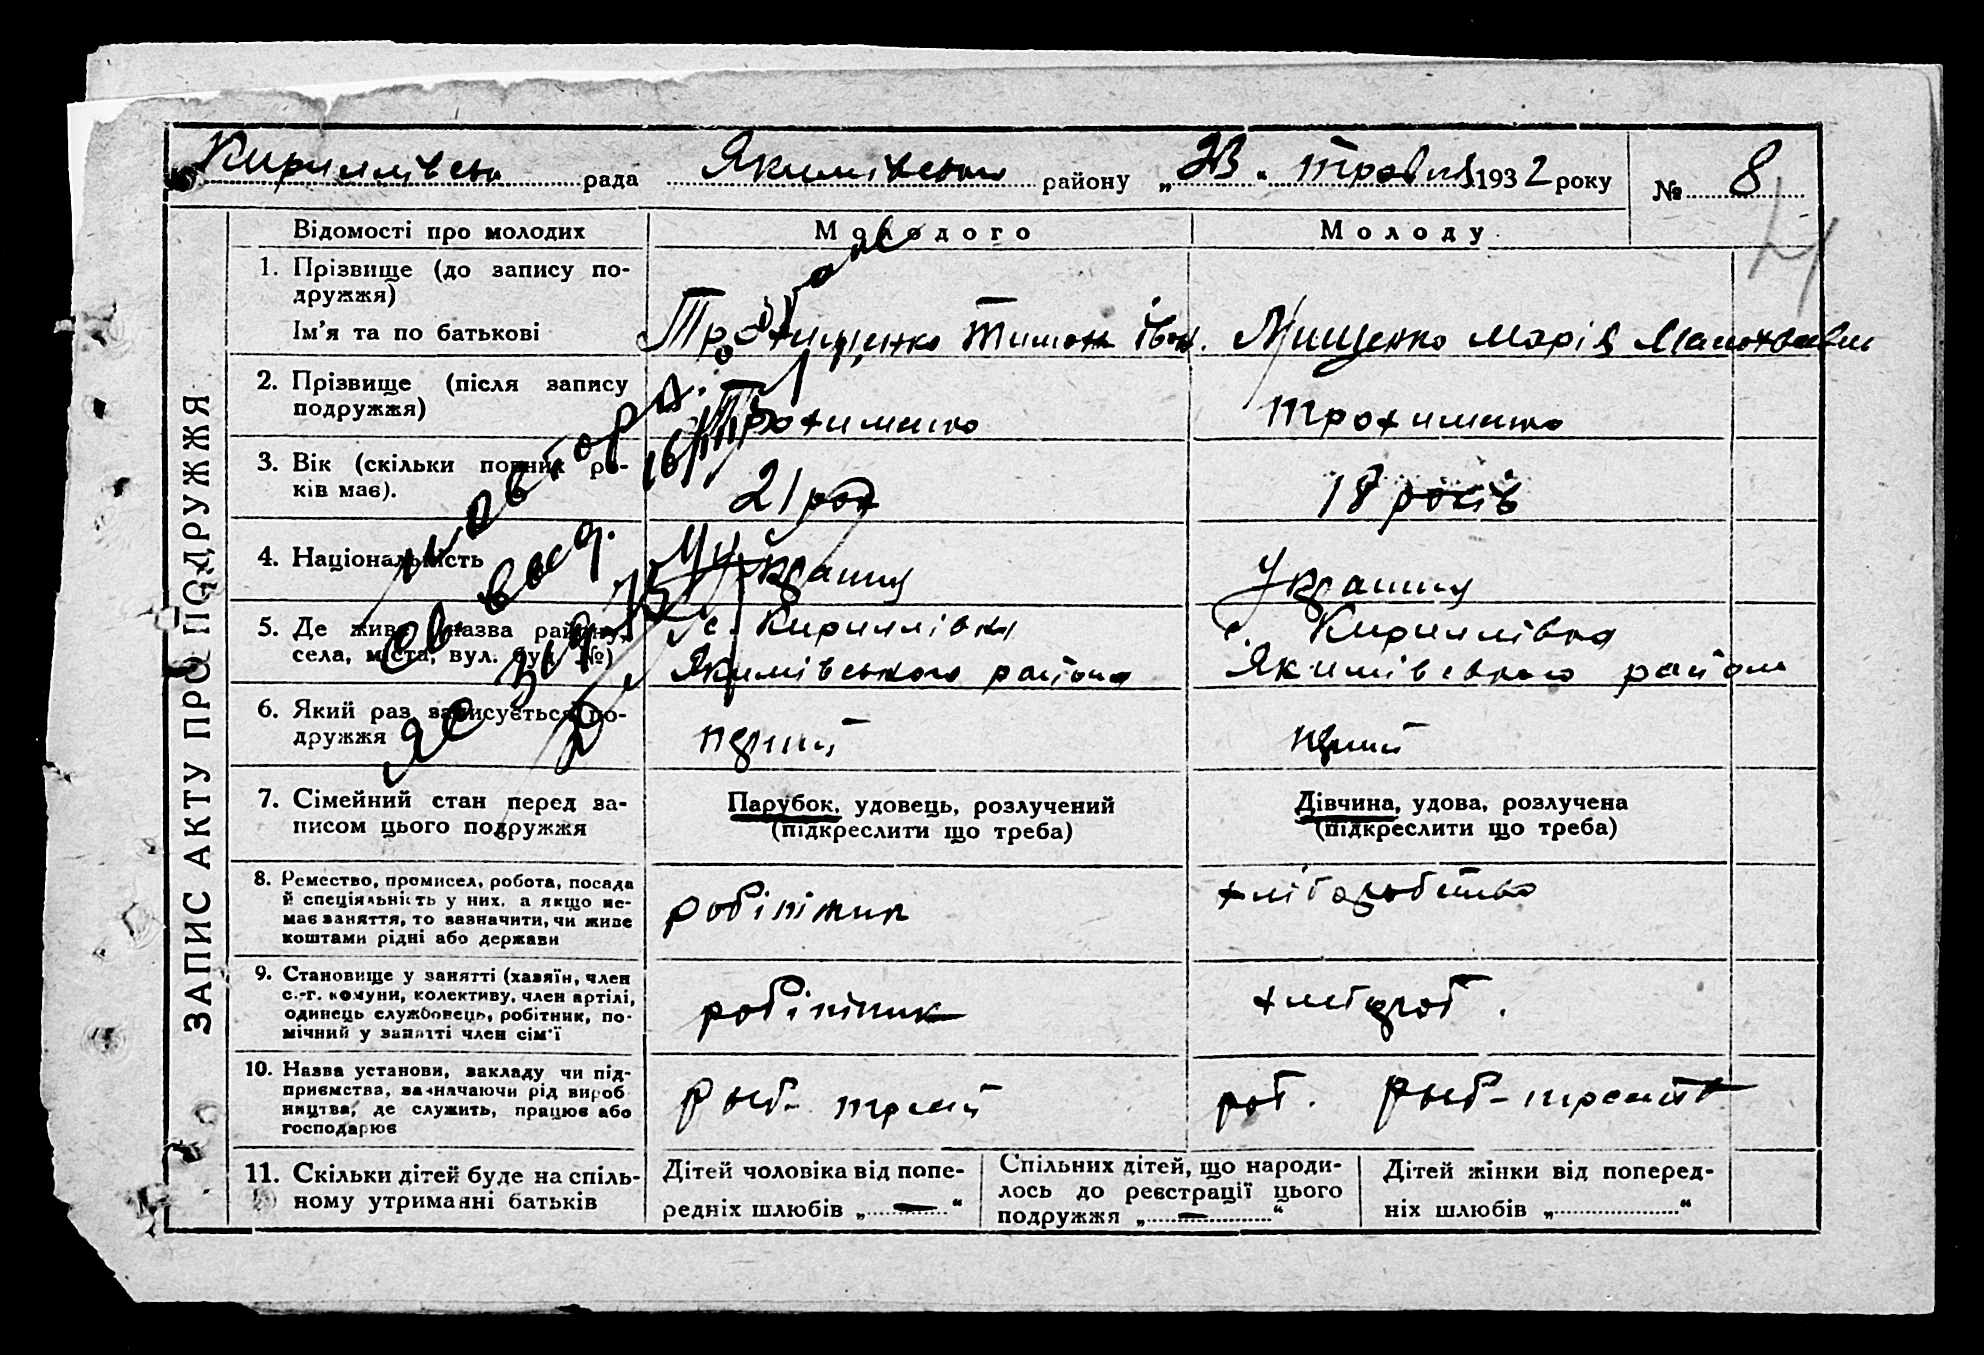 Кириллівська рада Якимівського району „ 23 “ травня 1932 року № 8
ЗАПИС АКТУ ПРО ПОДРУЖЖЯ
Відомості про молодих Молодого Молоду
1. Прізвище (до запису по-
дружжя)
Ім’я та по батькові
Тимош Іван. Мищенко Марія
2. Прізвище (після запису
подружжя)
Трохименко Трохименко
3. Вік (скільки повних ро-
ків має).
21 рок 18 років
4. Національність
Украинц Украинц
5. Де живе (назва району,
села, міста, вул. буд. №)
с. Кириллівка
Якимівського района
с. Кириллівка
Якимівського району
6. Який раз записується по-
дружжя
перший перший
7. Сімейний стан перед за-
писом цього подружжя
Парубок, удовець, розлучений
(підкреслити що треба)
Дівчина, удова, розлучена
(підкреслити що треба)
8. Ремество, промисел, робота, посада
й спеціяльність у них, а якщо не-
має заняття, то зазначити, чи живе
коштами рідні або держави
робітник хліборобство
9. Становище у занятті (хазяїн, член
с.-г. комуни, колективу, член артілі,
одинець службовець, робітник, по-
мічний у занятті член сім’ї
робітник хлібороб.
10. Назва установи, закладу чи під-
приємства, зазначаючи рід вироб
ництва, де служить, працює або
господарює
Рыб-трест роб. Рыб-трест
11. Скільки дітей буде на спіль-
ному утриманні батьків
Дітей чоловіка від попе-
редніх шлюбів „ — “
Спільних дітей, що народи-
лось до реєстрації цього
подружжя „ — “
Дітей жінки від поперед-
ніх шлюбів „ “
повторн.
св. выд.